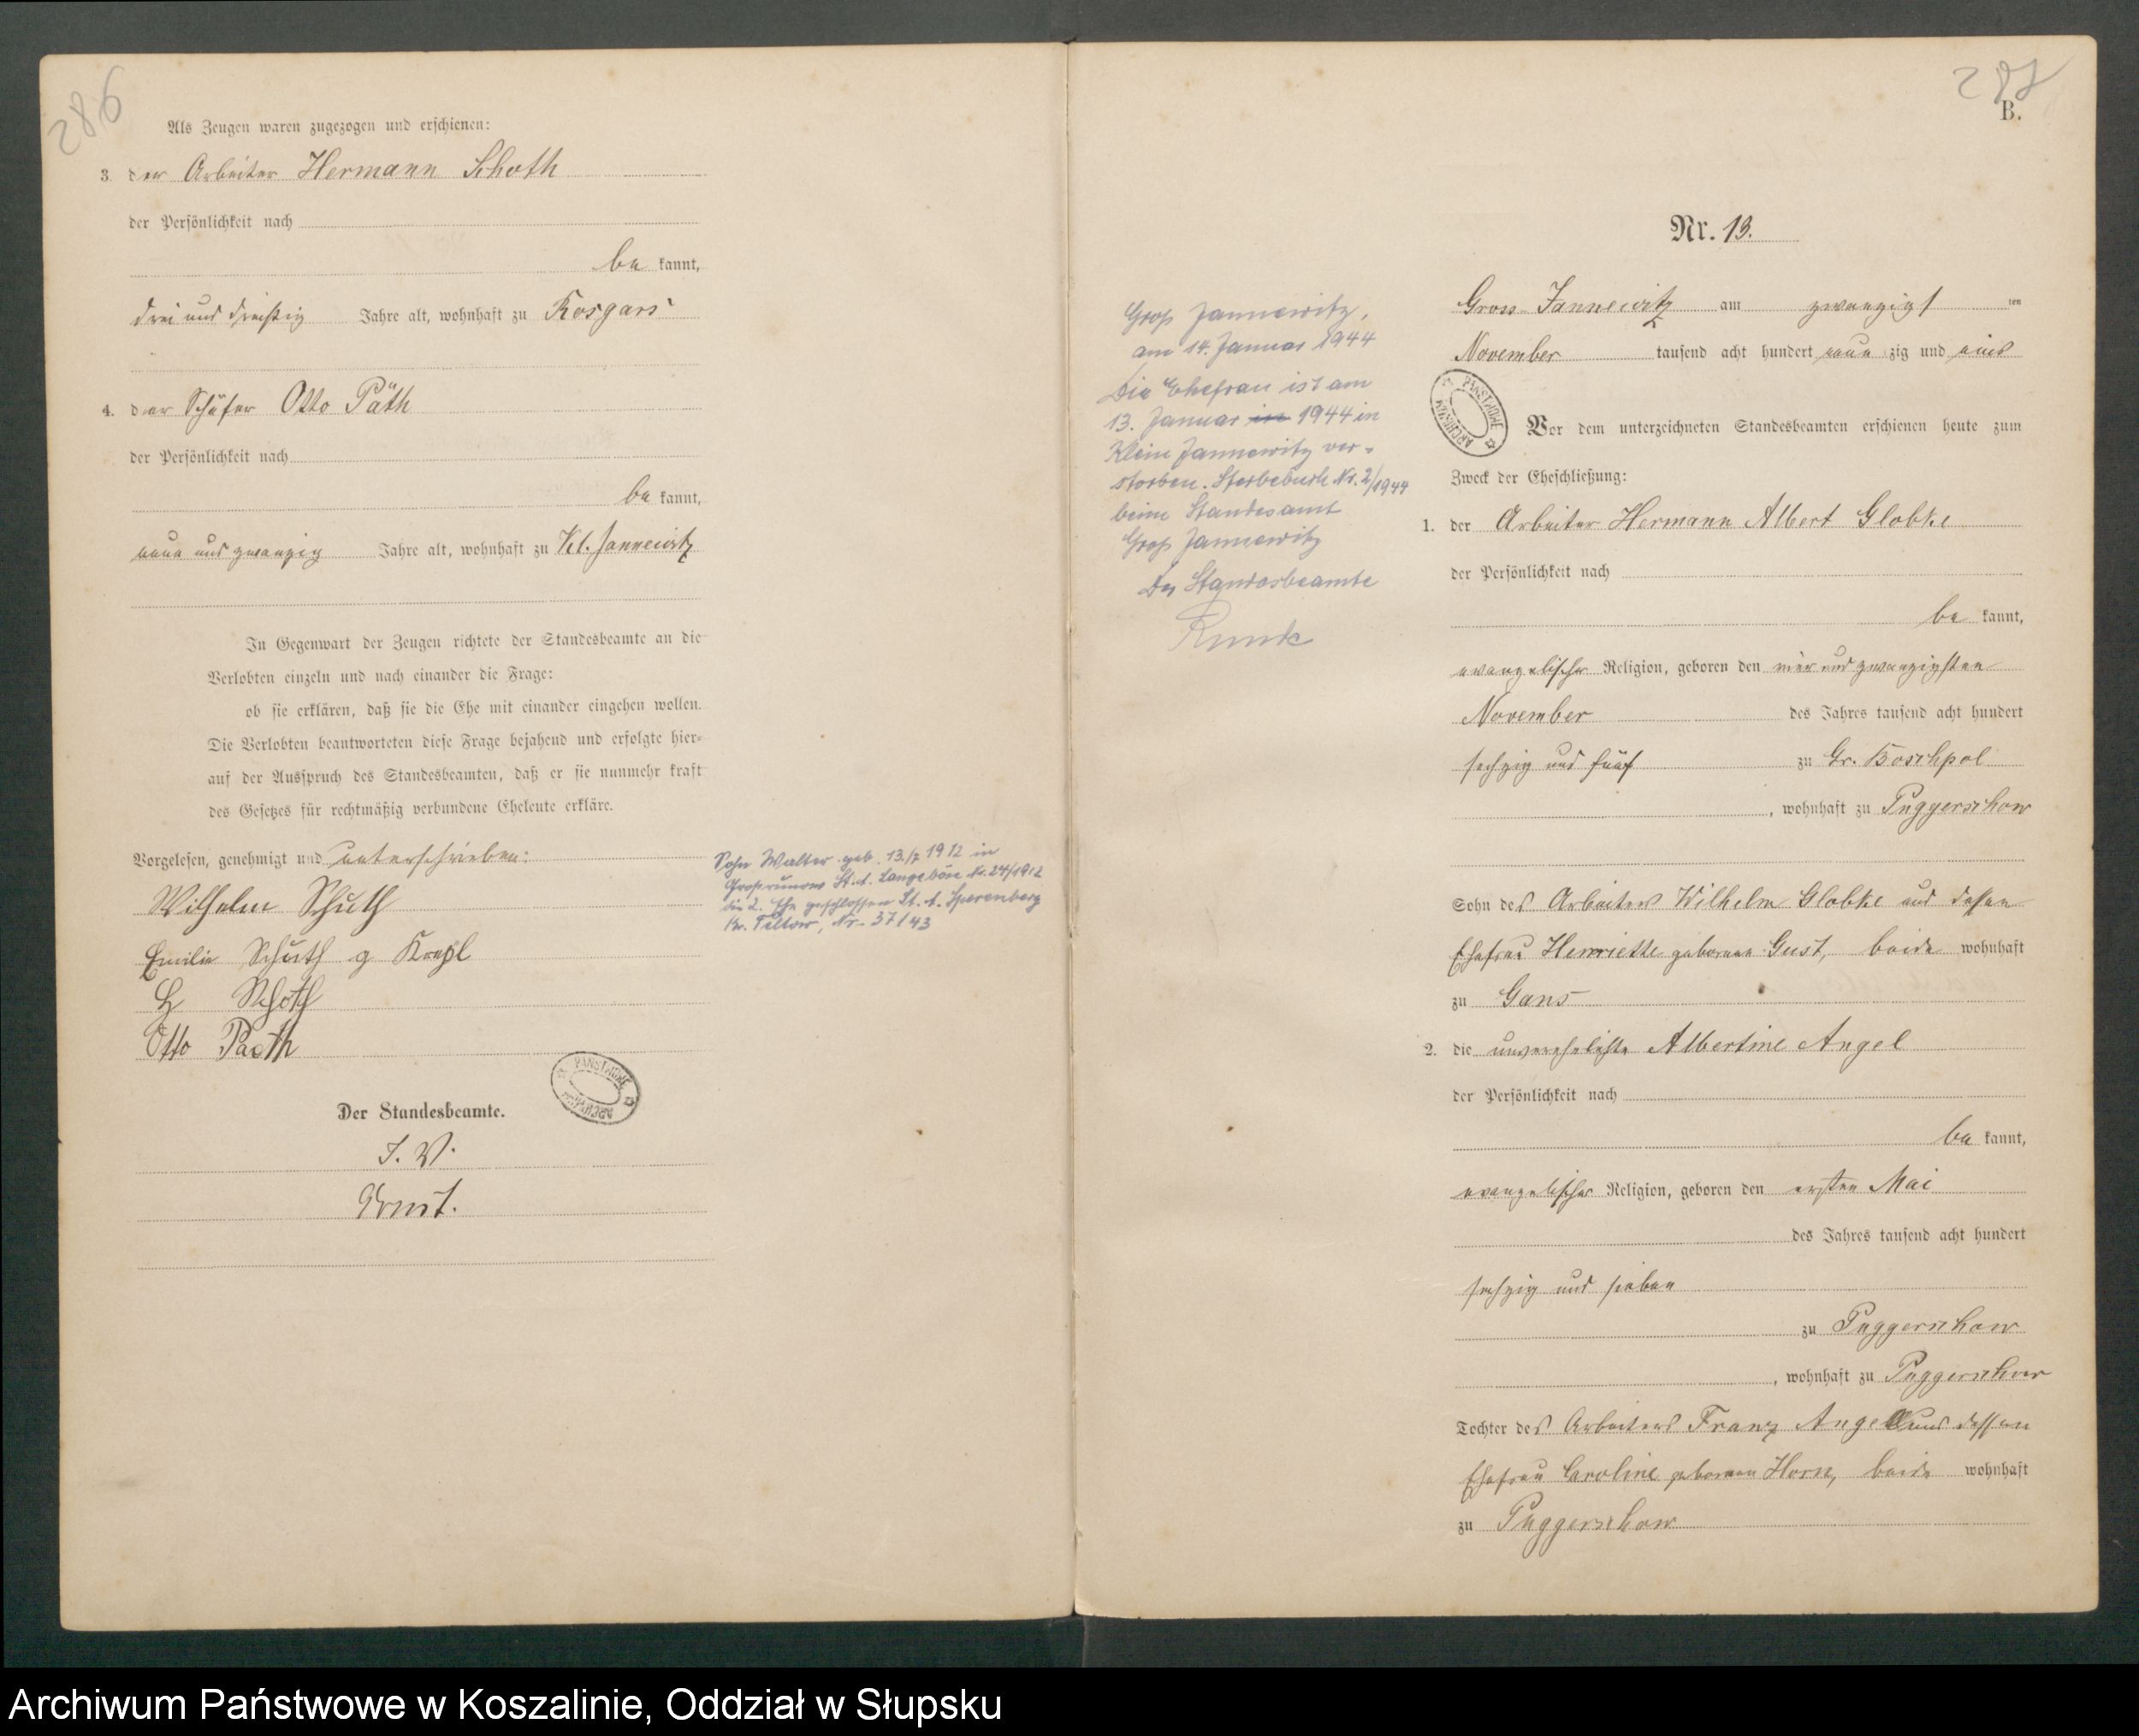 286
Als Zeugen waren zugezogen und erschienen:
3. der Arbeiter Hermann Schoth
der Persönlichkeit nach
be kannt,
drei und dreißig Jahre alt, wohnhaft zu Rosgars
4. der Schäfer Otto Päth
der Persönlichkeit nach
be kannt,
neun und zwanzig Jahre alt, wohnhaft zu Kl. Jannewitz
In Gegenwart der Zeugen richtete der Standesbeamte an die
Verlobten einzeln und nach einander die Frage:
ob sie erklären, daß sie die Ehe mit einander eingehen wollen.
Die Verlobten beantworteten diese Frage bejahend und erfolgte hier=
auf der Ausspruch des Standesbeamten, daß er sie nunmehr kraft
des Gesetzes für rechtmäßig verbundene Eheleute erkläre.
Vorgelesen, genehmigt und unterschrieben:
Wilhelm Schuth
Emilie Schuth g
H Schoth
Otto Paeth
Der Standesbeamte.
I. V.
Ernst.
PAŃSTWOWE ARCHIWUM
Sohn Walter geb. 13./7 1912 in
St. A. Langeböse Nr. 24/1912
die 2. Ehe geschlossen St. A. Sperenberg
Kr. Teltow, Nr. 37/43
287
B.
Nr. 13.
Gross Jannewitz am zwanzigst ten
November tausend acht hundert neun zig und eins
PAŃSTWOWE ARCHIWUM
Vor dem unterzeichneten Standesbeamten erschienen heute zum
Zweck der Eheschließung:
1. der Arbeiter Hermann Albert Globke
der Persönlichkeit nach
be kannt,
evangelischer Religion, geboren den vier und zwanzigsten
November des Jahres tausend acht hundert
sechzig und fünf zu Gr. Boschpol
, wohnhaft zu Puggerschow
Sohn des Arbeiters Wilhelm Globke und dessen
Ehefrau Henriette geborene Gust, beide wohnhaft
zu Gans
2. die unverehelichte Albertine Angel
der Persönlichkeit nach
be kannt,
evangelischer Religion, geboren den ersten Mai
des Jahres tausend acht hundert
sechzig und sieben
zu Puggerschow
, wohnhaft zu Puggerschow
Tochter des Arbeiters Franz Angel und dessen
Ehefrau Caroline geborenen Horn, beide wohnhaft
zu Puggerschow
Groß Jannewitz,
am 14. Januar 1944
Die Ehefrau ist am
13. Januar in 1944 in
Klein Jannewitz ver-
storben. Sterbebuch Nr. 2/1944
beim Standesamt
Groß Jannewitz
Der Standesbeamte
Archiwum Państwowe w Koszalinie, Oddział w Słupsku